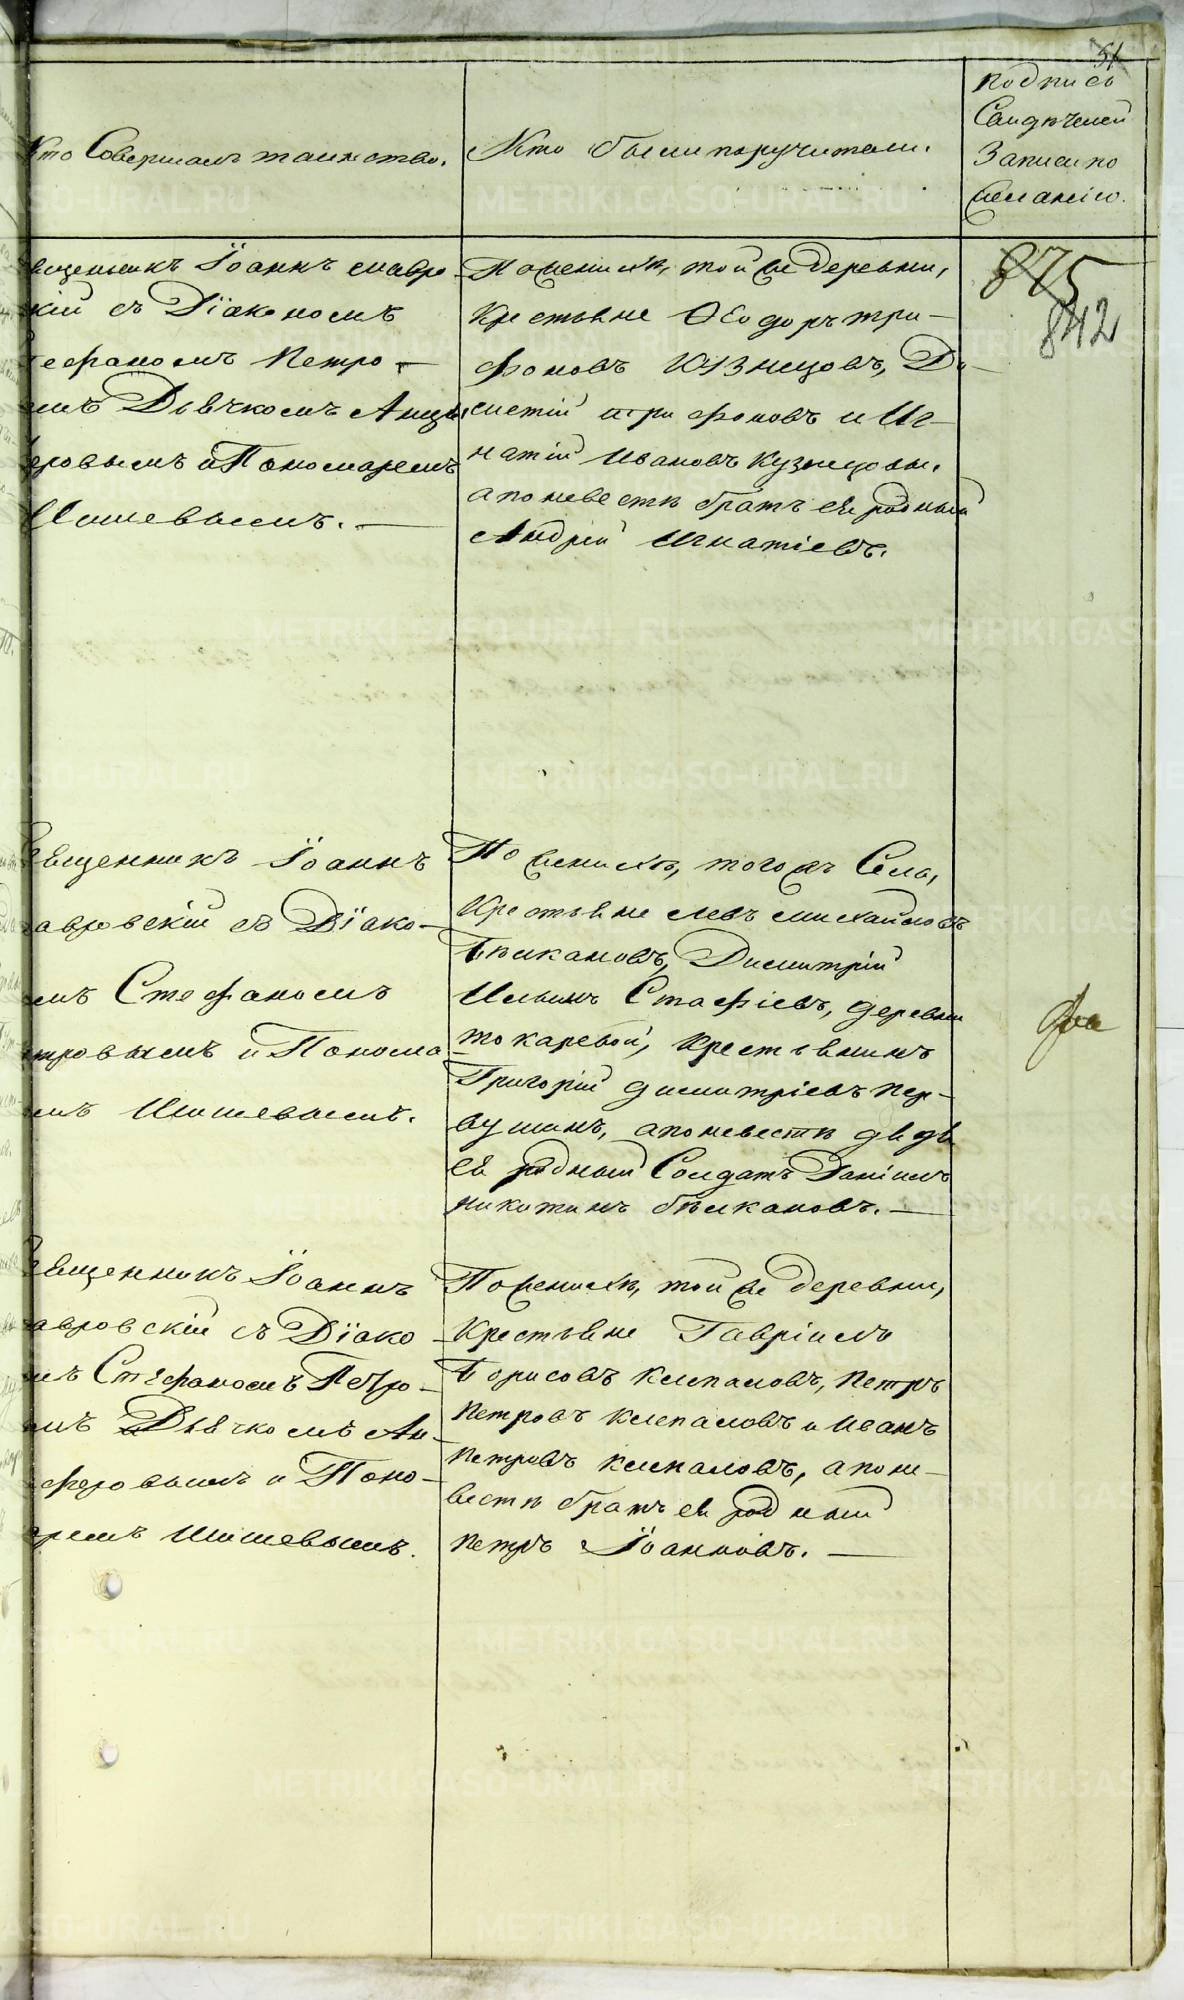 51
Кто Совершалъ таинство.
Кто были поручители.
подпись
Свидѣтелей
Записи по
желанію.
вященникъ Іоаннъ Лавро
кій съ Діакономъ
тефаномъ Петро-
мъ Дьячкомъ Анци
еровымъ и Пономаремъ
Шишевымъ.
По женихѣ, той же деревни,
Крестьяне Ѳеодоръ Три-
фоновъ Кузнецовъ, Ди-
митрій Трифоновъ и Иг-
натій Ивановъ Кузнецовы.
а по невестѣ братъ ея родный
Андрей Игнатіевъ.
875
842
вященникъ Іоаннъ
авровскій съ Діако-
мъ Стефаномъ
тровымъ и Понома
емъ Шишевымъ.
По женихѣ, того жъ Села,
Крестьяне Левъ Михайловъ
Бѣлкановъ, Димитрій
Ильинъ Стафіевъ, деревни
Токаревой, Крестьянинъ
Григорій Димитріевъ Пер-
вушинъ, а по невестѣ дядя
ея родный Солдатъ Даніилъ
Никитинъ Бѣлкановъ.
вященникъ Іоаннъ
авровскій съ Діако
мъ Стефаномъ Петро-
мъ Дьячкомъ Ан-
феровымъ и Поно-
аремъ Шишевымъ.
По женихѣ, той же деревни,
Крестьяне Гавріилъ
Борисовъ Клепаловъ, Петръ
Петровъ Клепаловъ и Иванъ
Петровъ Клепаловъ, а по не-
вестѣ братъ ея родный
Петръ Іоанновъ.
METRIKI.GASO-URAL.RU